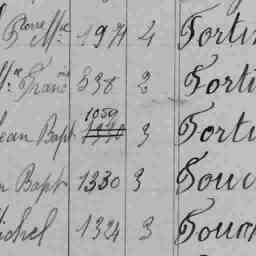 Pierre Mie 1971 4 Forti
Mie Franc 838 2 Forti
Jean Bapt 1059 3 Forti
n Bapt 1330 3 Fouc
Michel 1324 3 Fourn